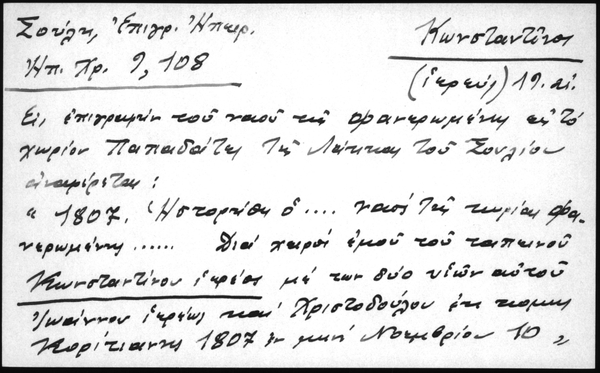 Σούλη, Ἐπιγρ. Ἠπειρ.
Ἠπ. Χρ. 9, 108
Κωνσταντῖνος
(ἱερεύς) 19. αἰ.
Εἰς ἐπιγραφήν τοῦ ναοῦ τῆς Φανερωμένης εἰς τό
χωρίον Παπαδάτες τῆς Λάκκας τοῦ Σουλίου
ἀναφέρεται:
"1807. Ἱστορήθη ὁ .... ναός τῆς κυρίας Φα-
νερωμένης ...... Διά χειρός ἐμοῦ τοῦ ταπεινοῦ
Κωνσταντίνου ἱερέος μέ των δύο υἱῶν αὐτοῦ
Ἰωάννου ἱερέως καί Χριστοδούλου ἐκ κομης
Κορίτιανης 1807 ἐν μηνί Νοεμβρίου 10"